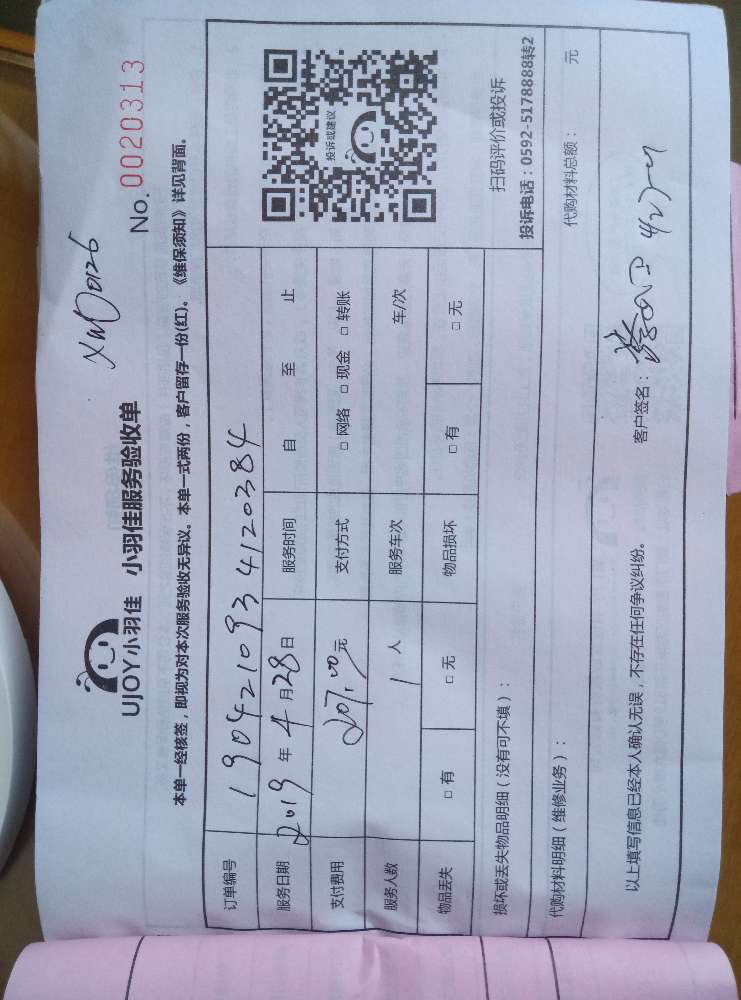 XM00126
UJOY小羽佳 小羽佳服务验收单
No. 0020313
本单一经核签，即视为对本次服务验收无异议。本单一式两份，客户留存一份(红)。《维保须知》详见背面。
订单编号 1904210934120384
服务日期 2019 年 4 月 28 日 服务时间 自 至 止
支付费用 207.00 元 支付方式 □ 网络 □ 现金 □ 转账
服务人数 1 人 服务车次 车/次
物品丢失 □ 有 □ 无 物品损坏 □ 有 □ 无
投诉或建议
扫码评价或投诉
投诉电话：0592-5178888转2
损坏或丢失物品明细（没有可不填）：
代购材料明细（维修业务）： 代购材料总额： 元
以上填写信息已经本人确认无误，不存在任何争议纠纷。 客户签名：